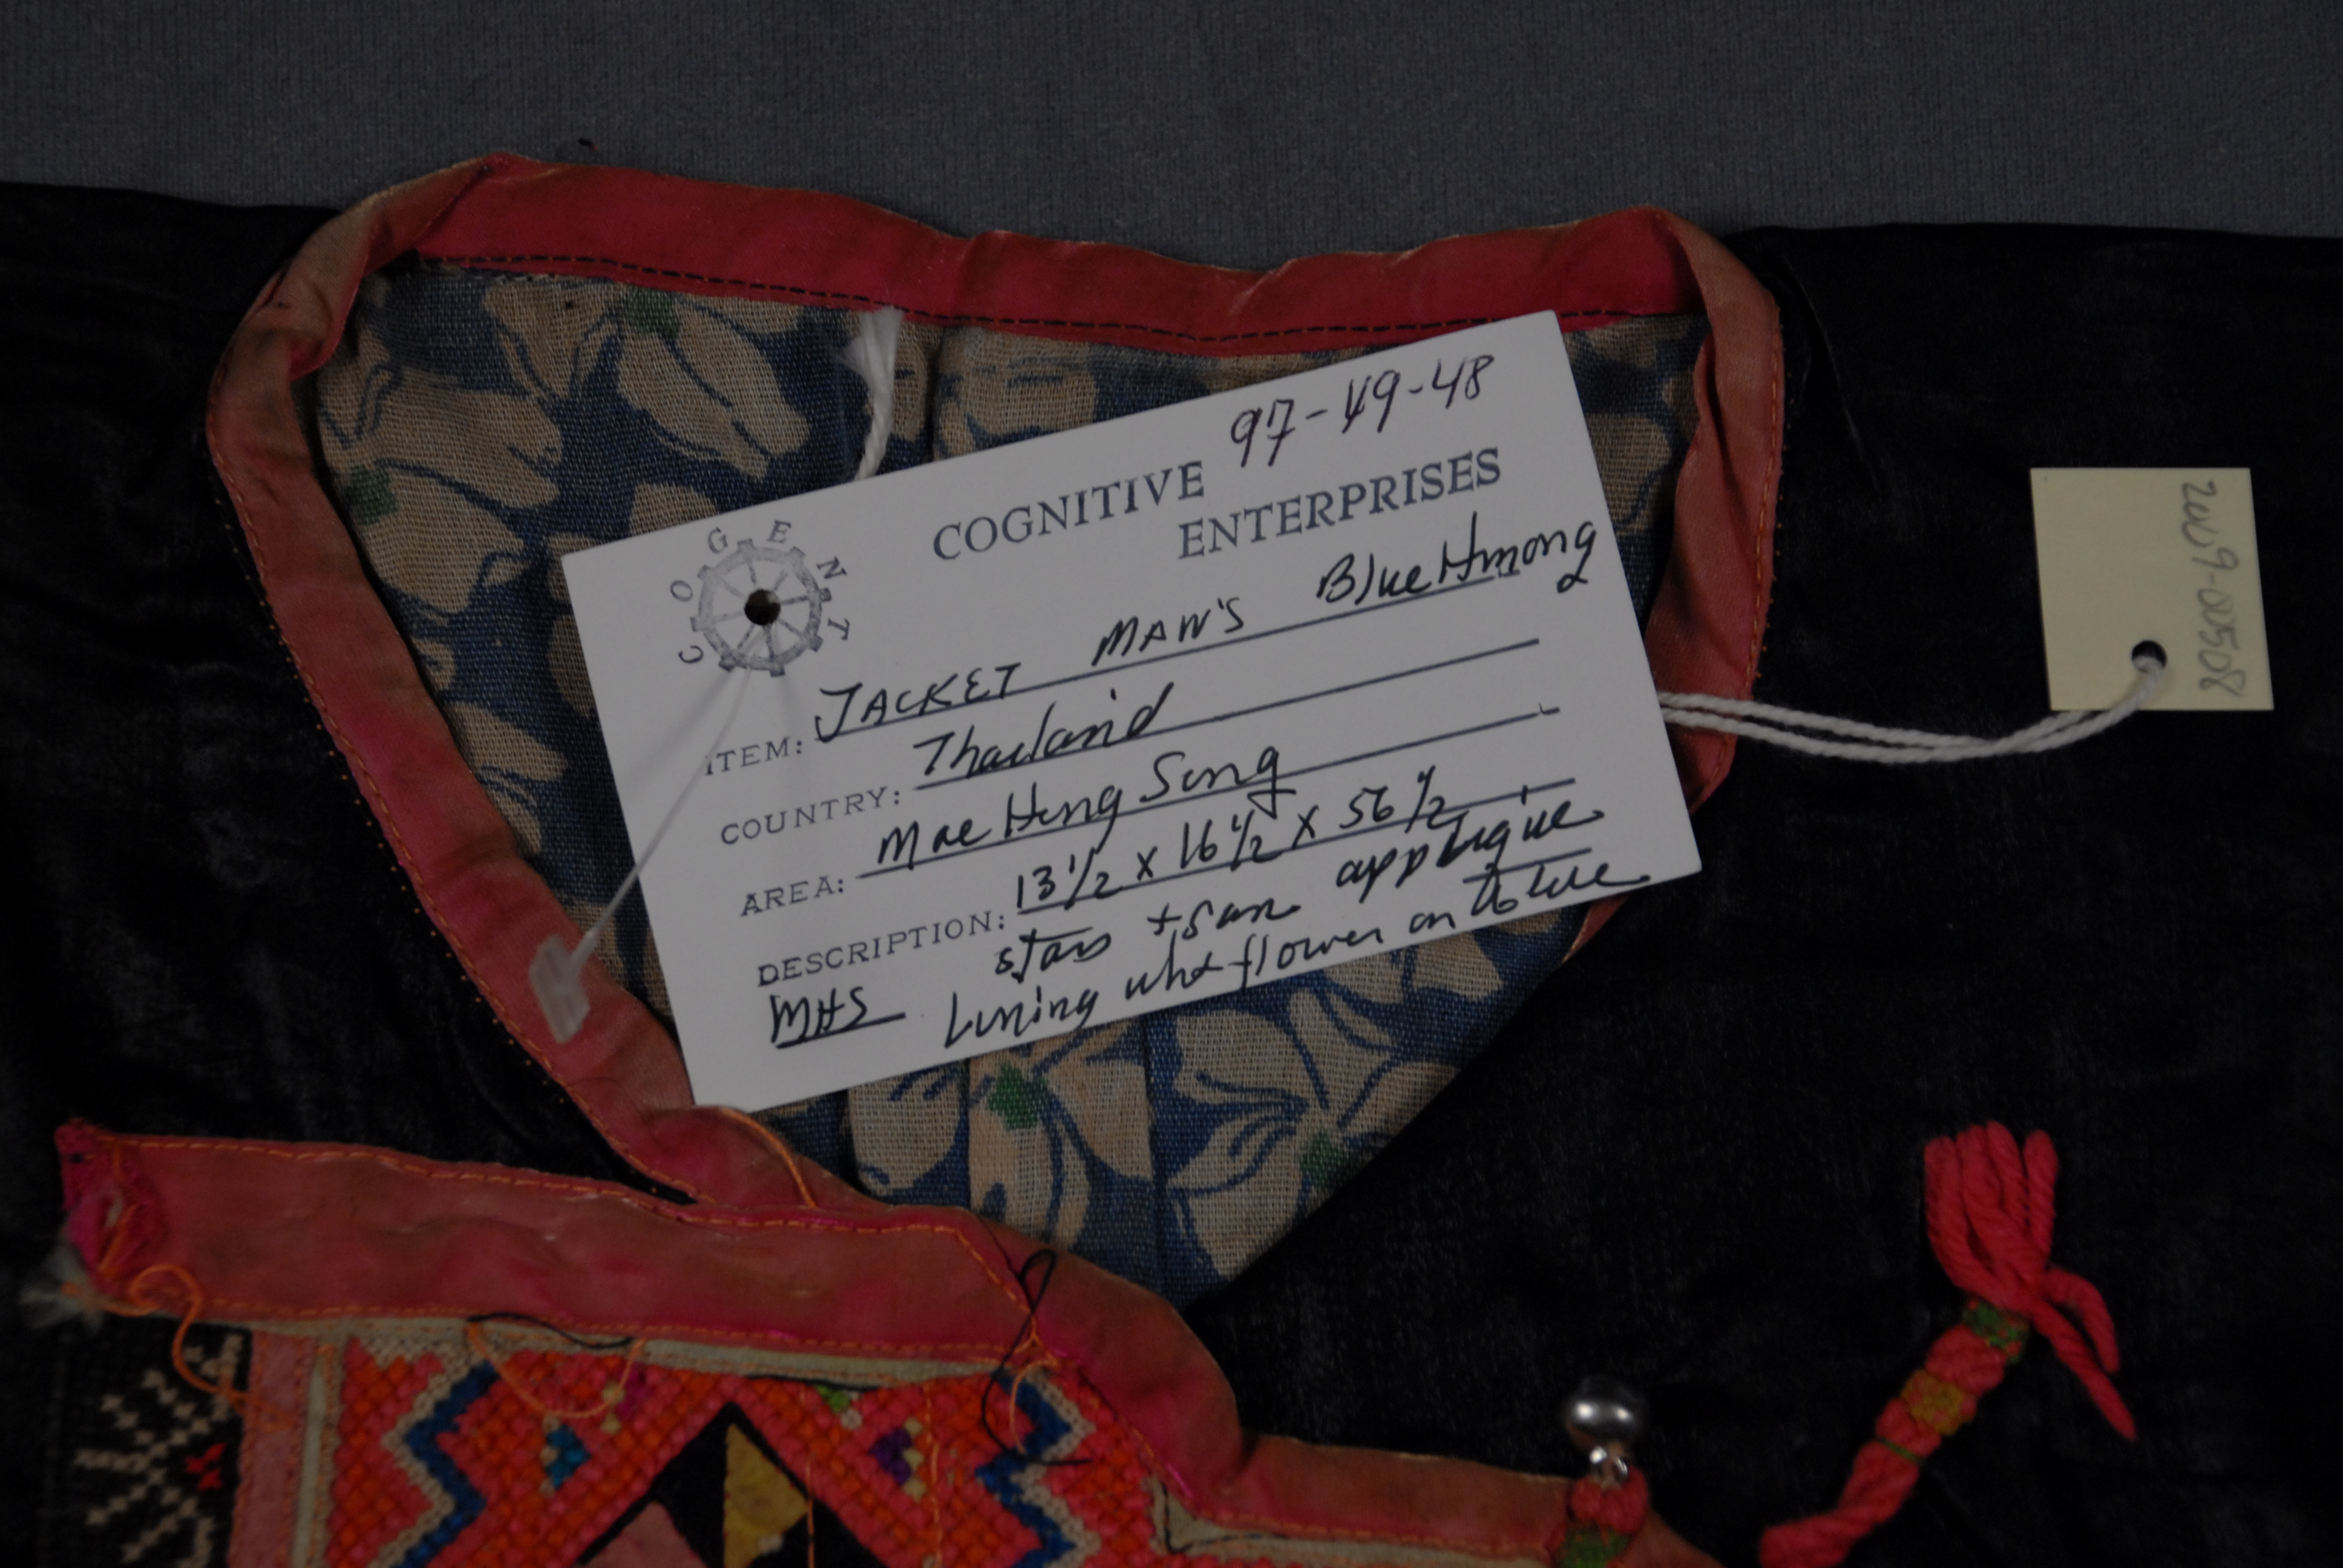 97-49-48
COGNITIVE
ENTERPRISES
COGENT
ITEM: JACKET MAN'S Blue Hmong
COUNTRY: Thailand
AREA: Mae Hong Song
DESCRIPTION: 13 1/2 x 16 1/2 x 56 1/2
stars + sun applique
MHS Lining wht flower on blue
2009-00508